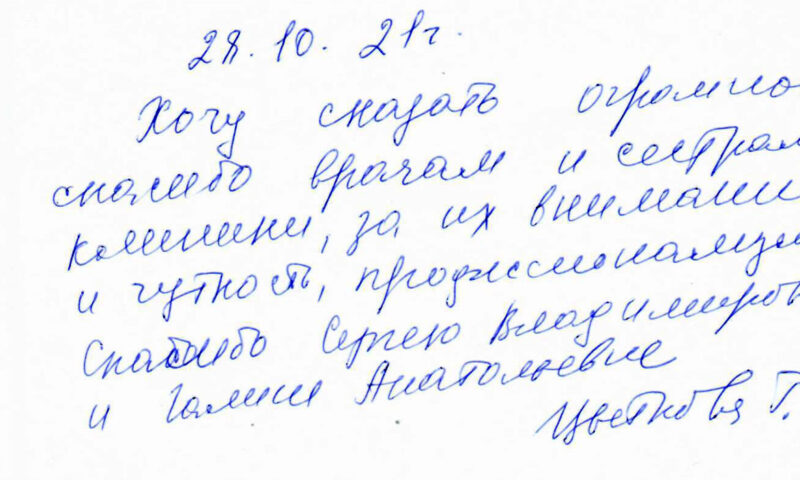 28.10.21г.
Хочу сказать огромно
спасибо врачам и сестрам
клиники, за их внимани
и чуткость, профессионализм
Спасибо Сергею Владимиров
и Галине Анатольевне
Цветкова Г.